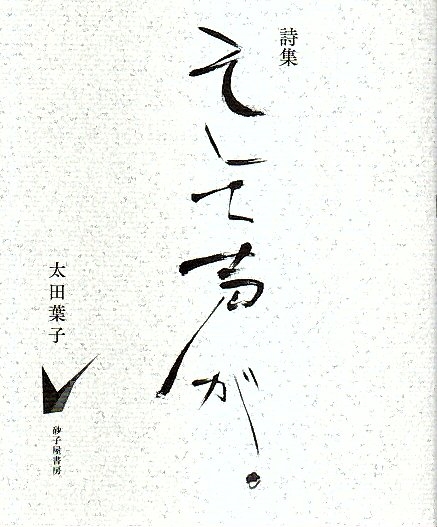 詩集
そして声が。
太田葉子
砂子屋書房